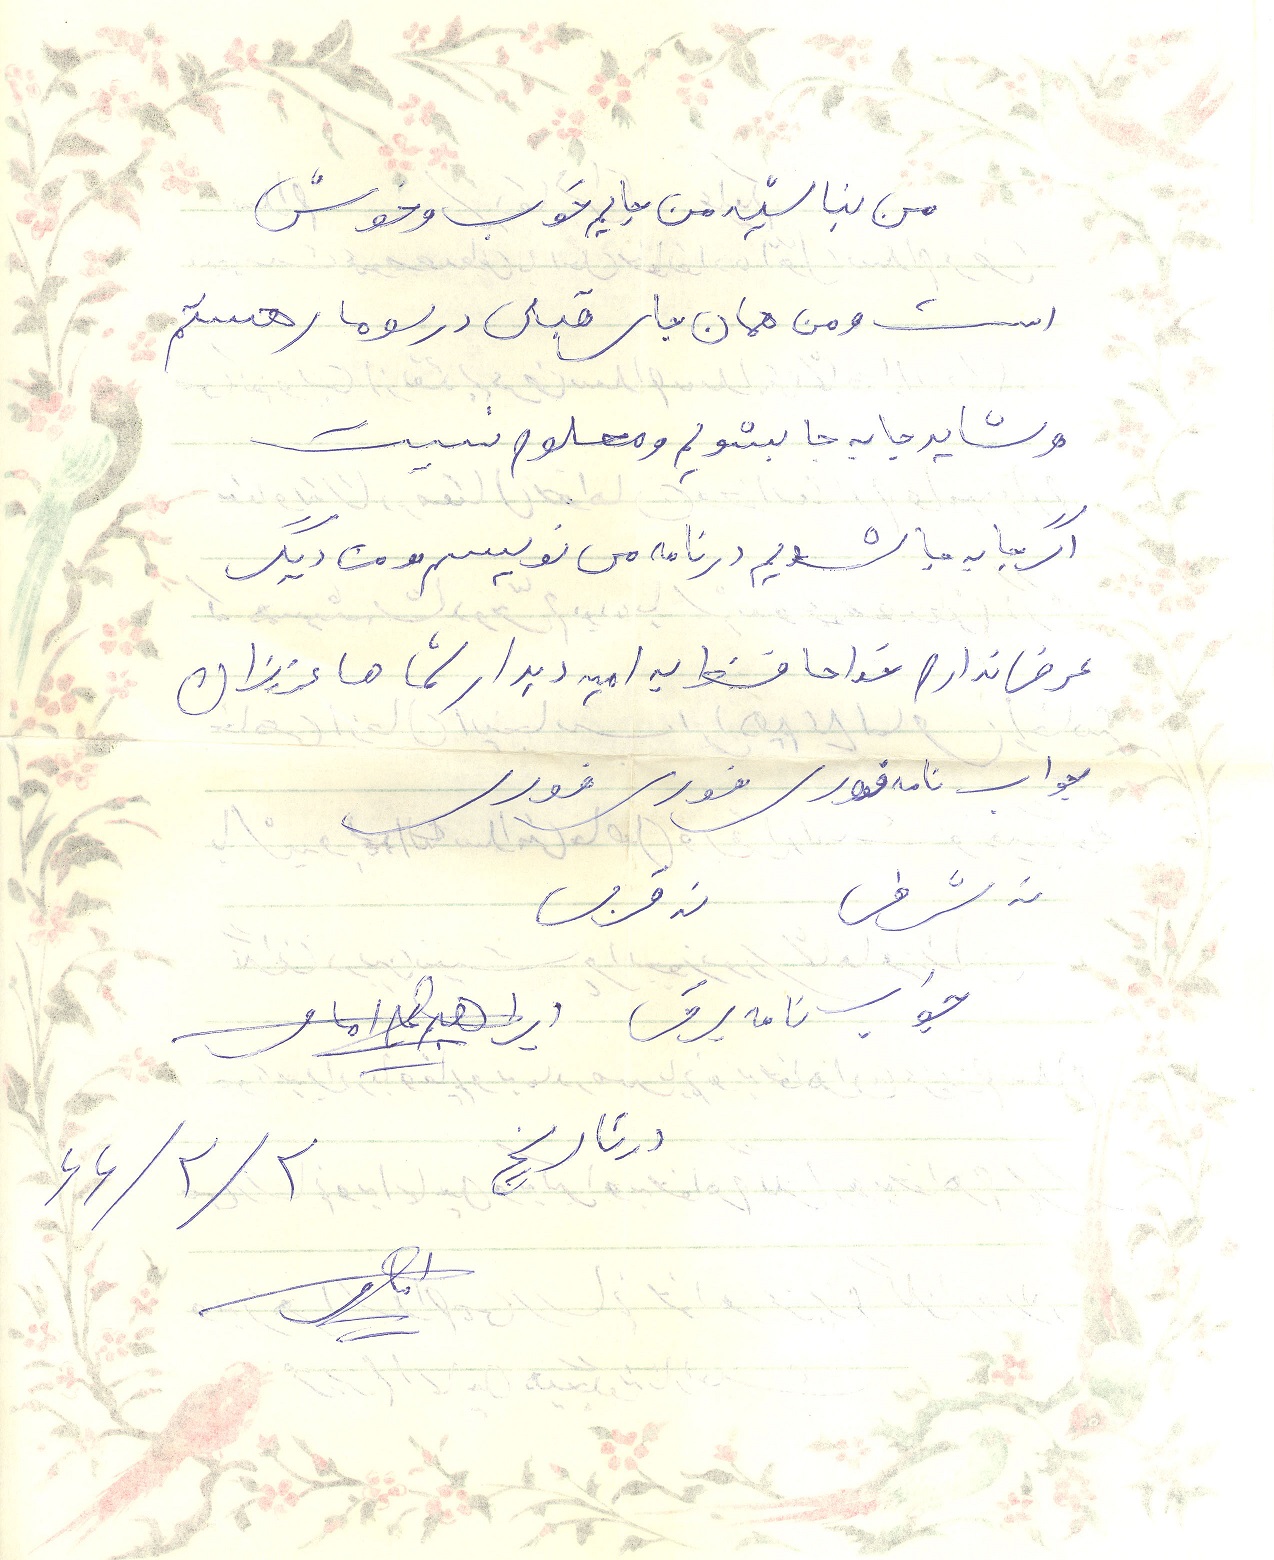 من نباشید من جایم خوب و خوش
است و من همان جای قبلی در سومار هستم
و شاید جابه جا بشویم و معلوم نیست
اگر جا به جا شویم در نامه می نویسم و من دیگر
عرضی ندارم خداحافظ به امید دیدار شما ها عزیزان
جواب نامه فوری فوری فوری
نه شرقی نه غربی
جواب نامه برقی ابراهیم امامی
در تاریخ ۶۶/۲/۲
امامی